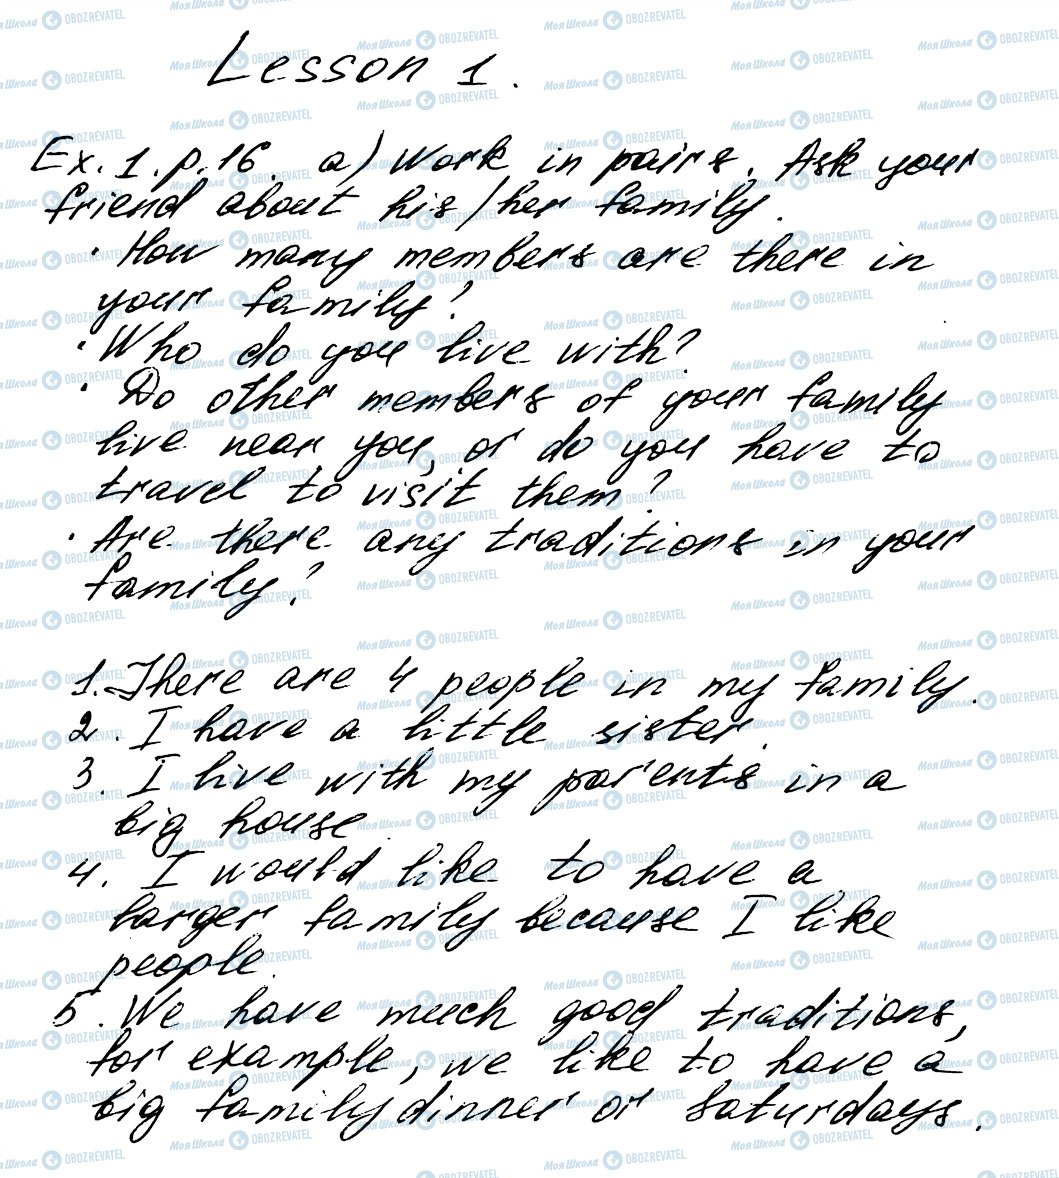 Lesson 1.
Ex. 1. p. 16. a) Work in pairs. Ask your
friend about his/her family.
· How many members are there in
your family?
· Who do you live with?
· Do other members of your family
live near you, or do you have to
travel to visit them?
· Are there any traditions in your
family?
1. There are 4 people in my family.
2. I have a little sister.
3. I live with my parents in a
big house.
4. I would like to have a
larger family because I like
people.
5. We have much good traditions,
for example, we like to have a
big family dinner or Saturdays.